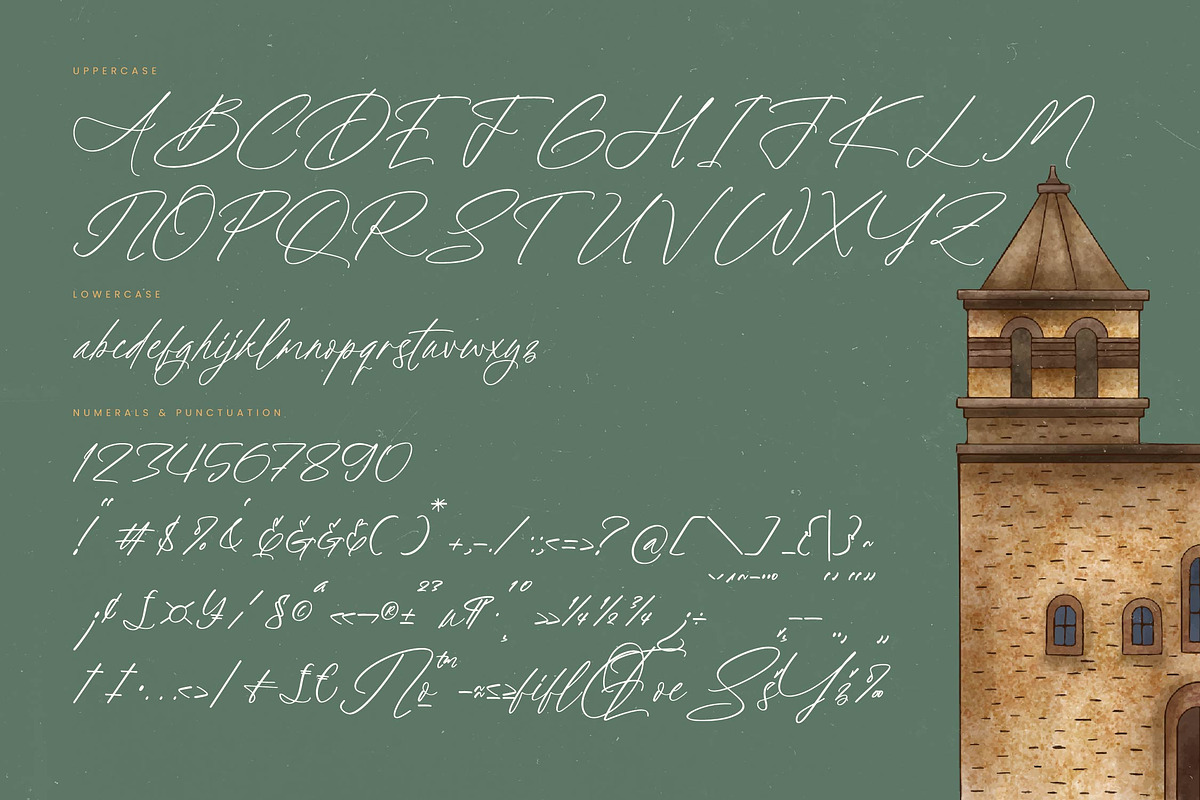 UPPERCASE
ABCDEFGHIJKLM
NOPQRSTUVWXYZ
LOWERCASE
abcdefghijklmnopqrstuvwxyz
NUMERALS & PUNCTUATION
1234567890
! " # $ % & ' ( ) * + , - . / : ; < = > ? @ [ \ ] _ { | } ~
¡ ¢ £ ¤ ¥ ¦ § © ª « ¬ ® ± 2 3 µ ¶ · ¸ 1 º » ¼ ½ ¾ ¿ ÷ – —
† ‡ • … ‹ › / £ € № ™ − ≈ ≤ ≥ fi fl Œ œ Š š Ÿ ž